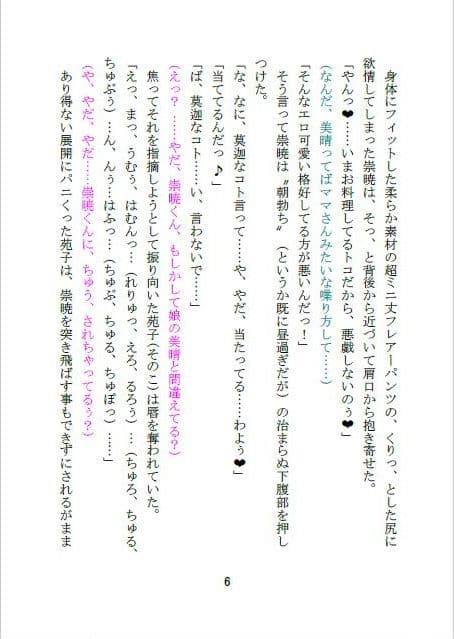 身体にフィットした柔らか素材の超ミニ丈フレアーパンツの、くりっ、とした尻に
欲情してしまった崇暁は、そっ、と背後から近づいて肩口から抱き寄せた。
「やんっ❤……いまお料理してるトコだから、悪戯しないのぅ❤」
(なんだ、美晴ってばママさんみたいな喋り方して……)
「そんなエロ可愛い格好してる方が悪いんだっ！」
そう言って崇暁は〝朝勃ち〟（というか既に昼過ぎだが）の治まらぬ下腹部を押し
つけた。
「な、なに、莫迦なコト言って……や、やだ、当たってる……わよぅ❤」
「当ててるんだっ♪」
「ば、莫迦なコト……い、言わないで……」
(えっ？ ……やだ、崇暁くん、もしかして娘の美晴と間違えてる？)
焦ってそれを指摘しようとして振り向いた苑子(そのこ)は唇を奪われていた。
「えっ、まっ、うむぅ、はむんっ…（れりゅっ、えろ、るろぅ）…（ちゅろ、ちゅる、
ちゅぷぅ）…ん、んぅ…はふっ…（ちゅぷ、ちゅる、ちゅぽっ）……」
(や、やだ、やだ……崇暁くんに、ちゅう、されちゃってるぅ？)
あり得ない展開にパニくった苑子は、崇暁を突き飛ばす事もできずにされるがまま
6